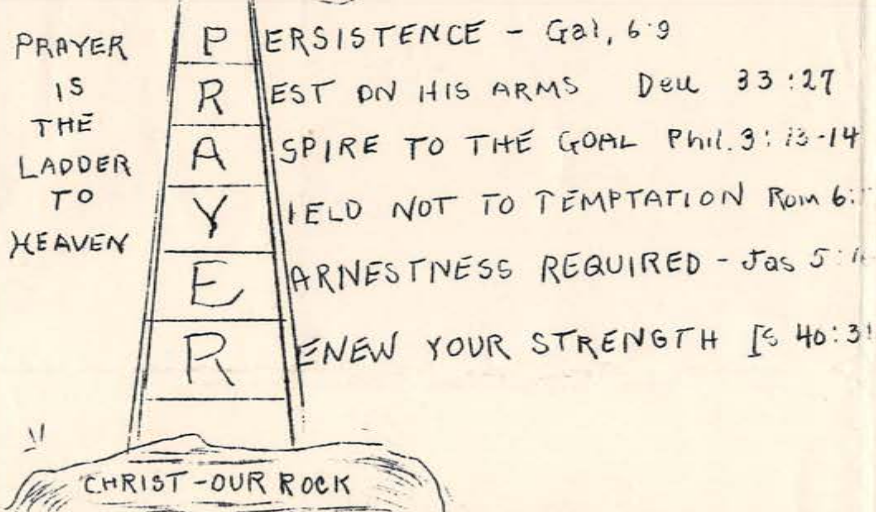 PRAYER
IS
THE
LADDER
TO
HEAVEN
PERSISTENCE - Gal, 6:9
REST ON HIS ARMS Deu 33:27
ASPIRE TO THE GOAL Phil. 3:13-14
YIELD NOT TO TEMPTATION Rom 6:
EARNESTNESS REQUIRED - Jas 5:
RENEW YOUR STRENGTH Is 40:3
CHRIST - OUR ROCK